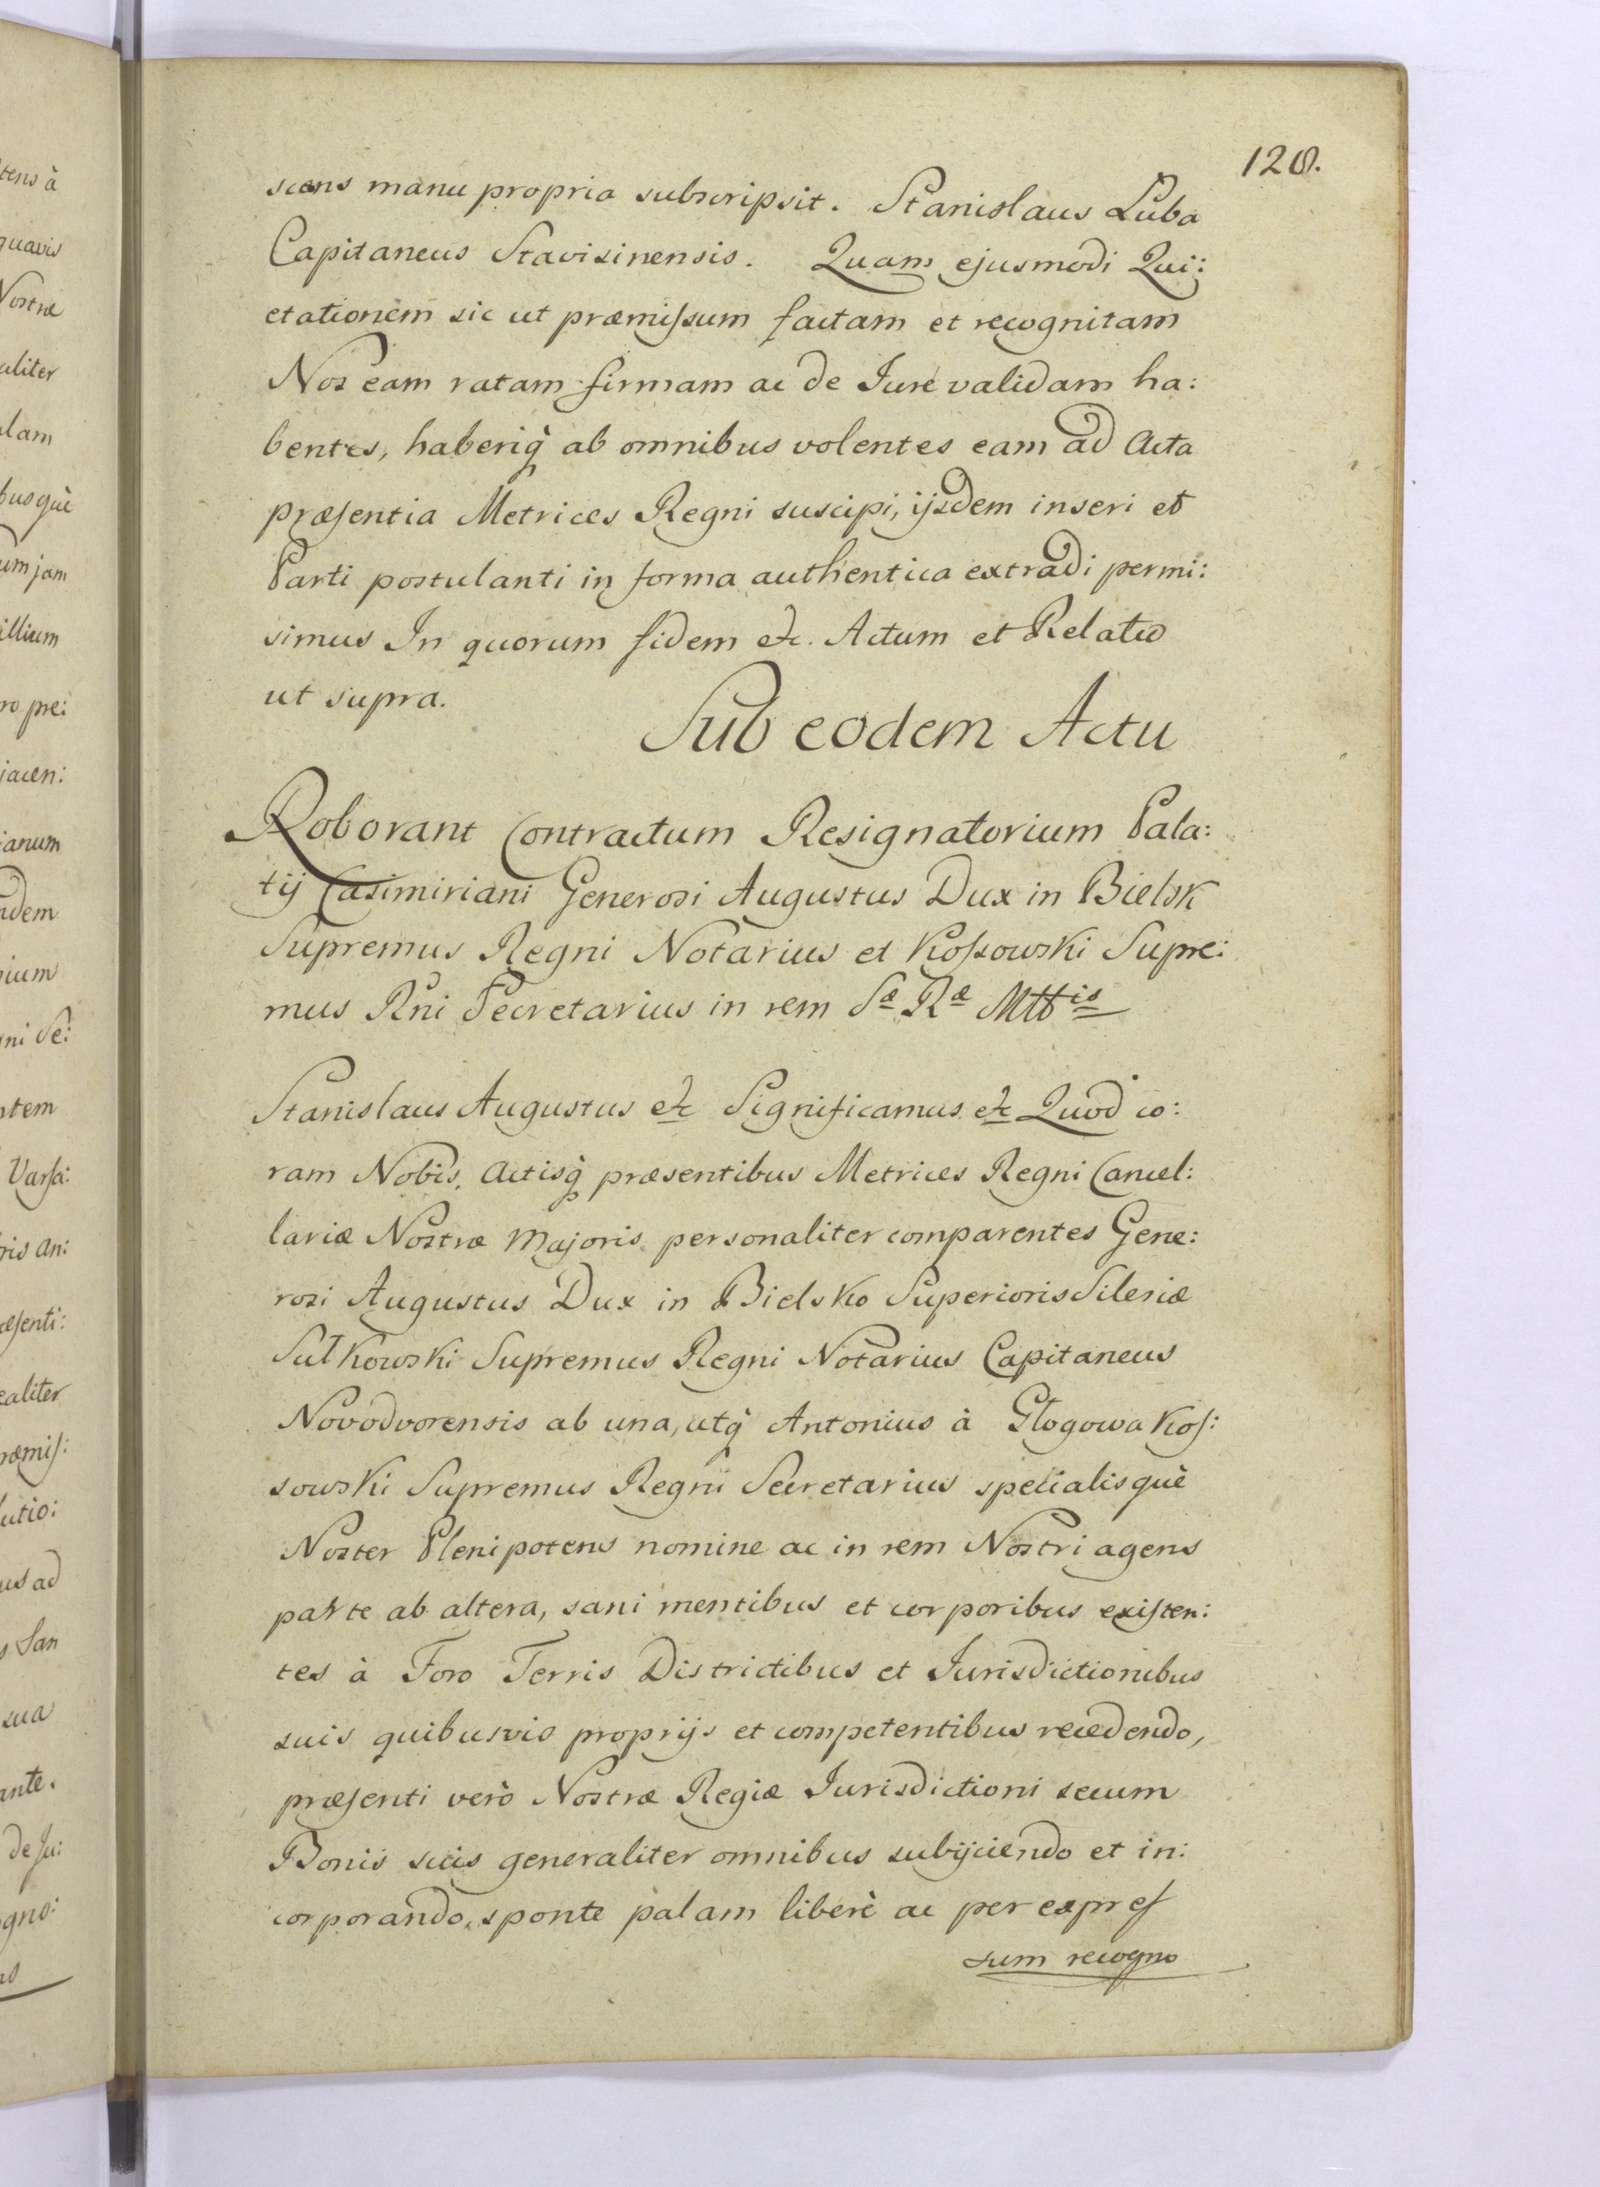 128.
scens manu propria subscripsit. Stanislaus Luba
Capitaneus Stavisinensis. Quam ejusmodi Qui:
etationem sic ut præmissum factam et recognitam
Nos eam ratam firmam ac de Jure validam ha:
bentes, haberiq̀ ab omnibus volentes eam ad Acta
præsentia Metrices Regni suscipi, ijsdem inseri et
Parti postulanti in forma authentica extradi permi:
simus In quorum fidem etc. Actum et Relatio
ut supra.
Sub eodem Actu
Roborant Contractum Resignatorium Pala:
tij Casimiriani Generosi Augustus Dux in Bielsk
Supremus Regni Notarius et Kossowski Supre:
mus Rni Secretarius in rem Sæ Ræ Mttis
Stanislaus Augustus etc Significamus etc Quod co:
ram Nobis, Actisq̀ præsentibus Metrices Regni Cancel:
lariæ Nostræ Majoris personaliter comparentes Gene:
rosi Augustus Dux in Bielsko Superioris Silesiæ
Sułkowski Supremus Regni Notarius Capitaneus
Novodvorensis ab una, utq̀ Antonius à Głogowa Kos:
sowski Supremus Regni Secretarius specialisquè
Noster Plenipotens nomine ac in rem Nostri agens
parte ab altera, sani mentibus et corporibus existen:
tes à Foro Terris Districtibus et Jurisdictionibus
suis quibusvis proprijs et competentibus recedendo,
præsenti verò Nostræ Regiæ Jurisdictioni secum
Bonis suis generaliter omnibus subijciendo et in:
corporando, sponte palam liberè ac per expres
sum recogno